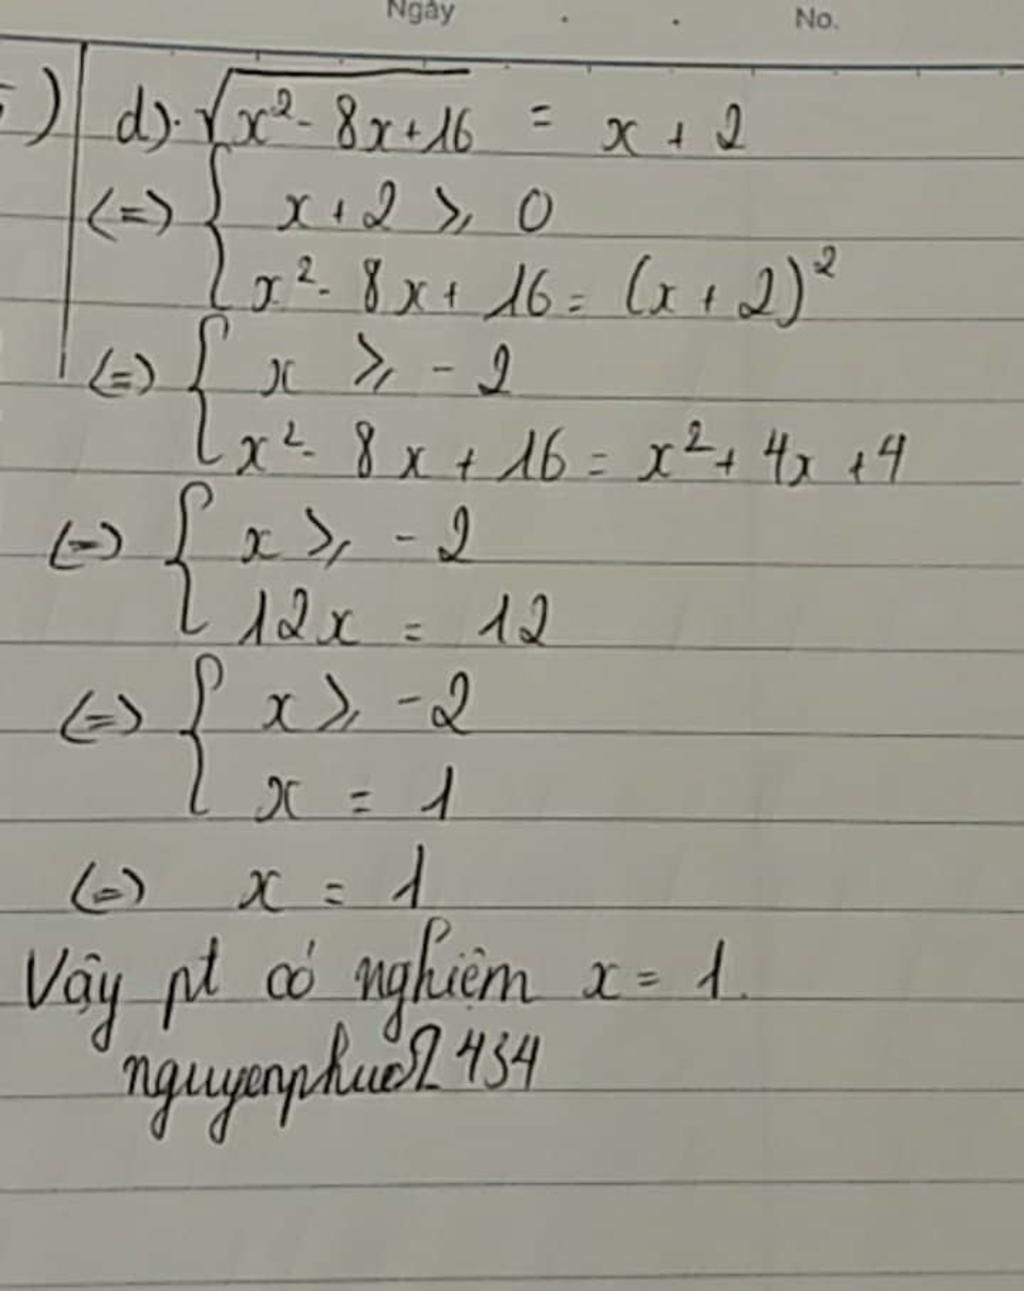 Ngày . . No.
) d). √(x² - 8x + 16) = x + 2
(=) { x + 2 ⩾ 0
x² - 8x + 16 = (x + 2)²
(=) { x ⩾ - 2
x² - 8x + 16 = x² + 4x + 4
(=) { x ⩾ - 2
12x = 12
(=) { x ⩾ - 2
x = 1
(=) x = 1
Vậy pt có nghiệm x = 1.